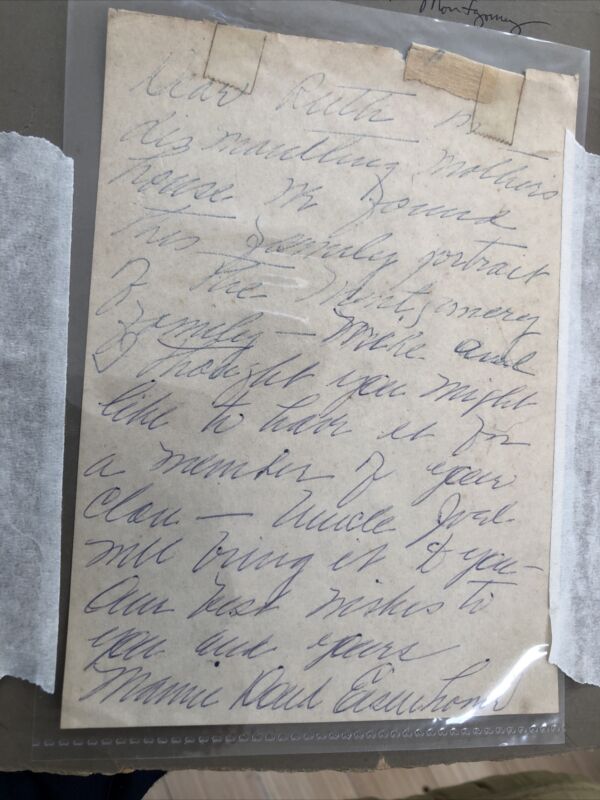 Montgomery
Dear Ruth in
dismantling mothers
house we found
this family portrait
of the Montgomery
family — Mike and
I thought you might
like to have it for
a member of your
Clan — Uncle Joel
will bring it to you —
Our best wishes to
you and yours
Mamie Doud Eisenhower